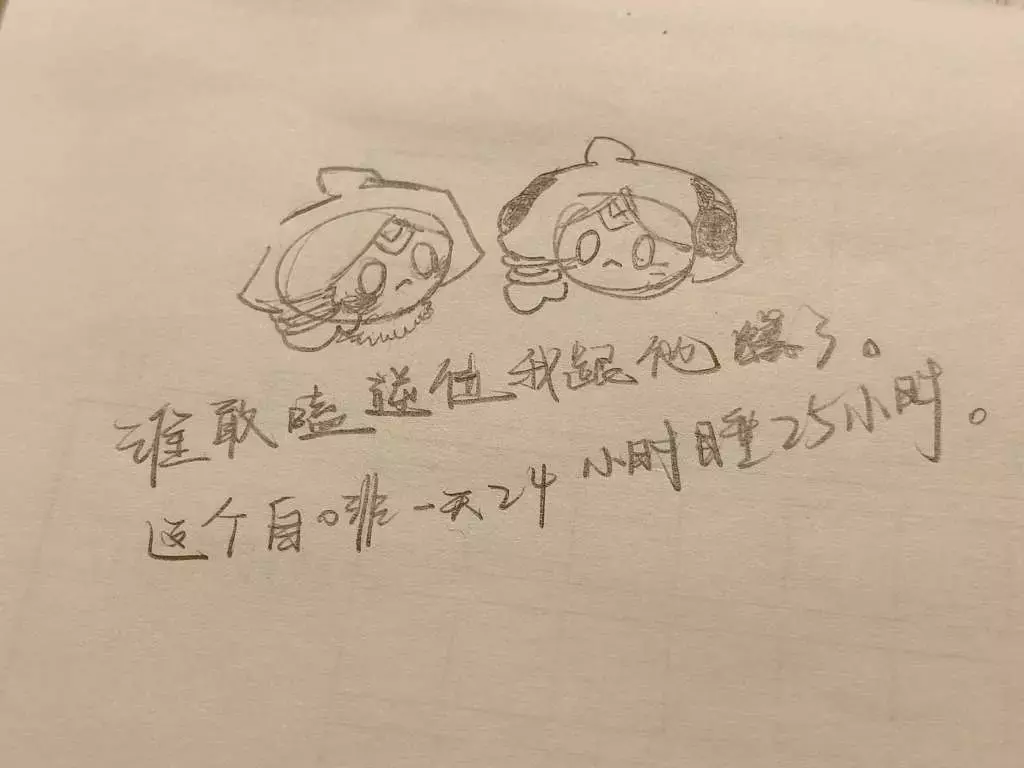 谁敢嗑逆他我跟他爆了。
这个自。啡一天24小时睡25小时。